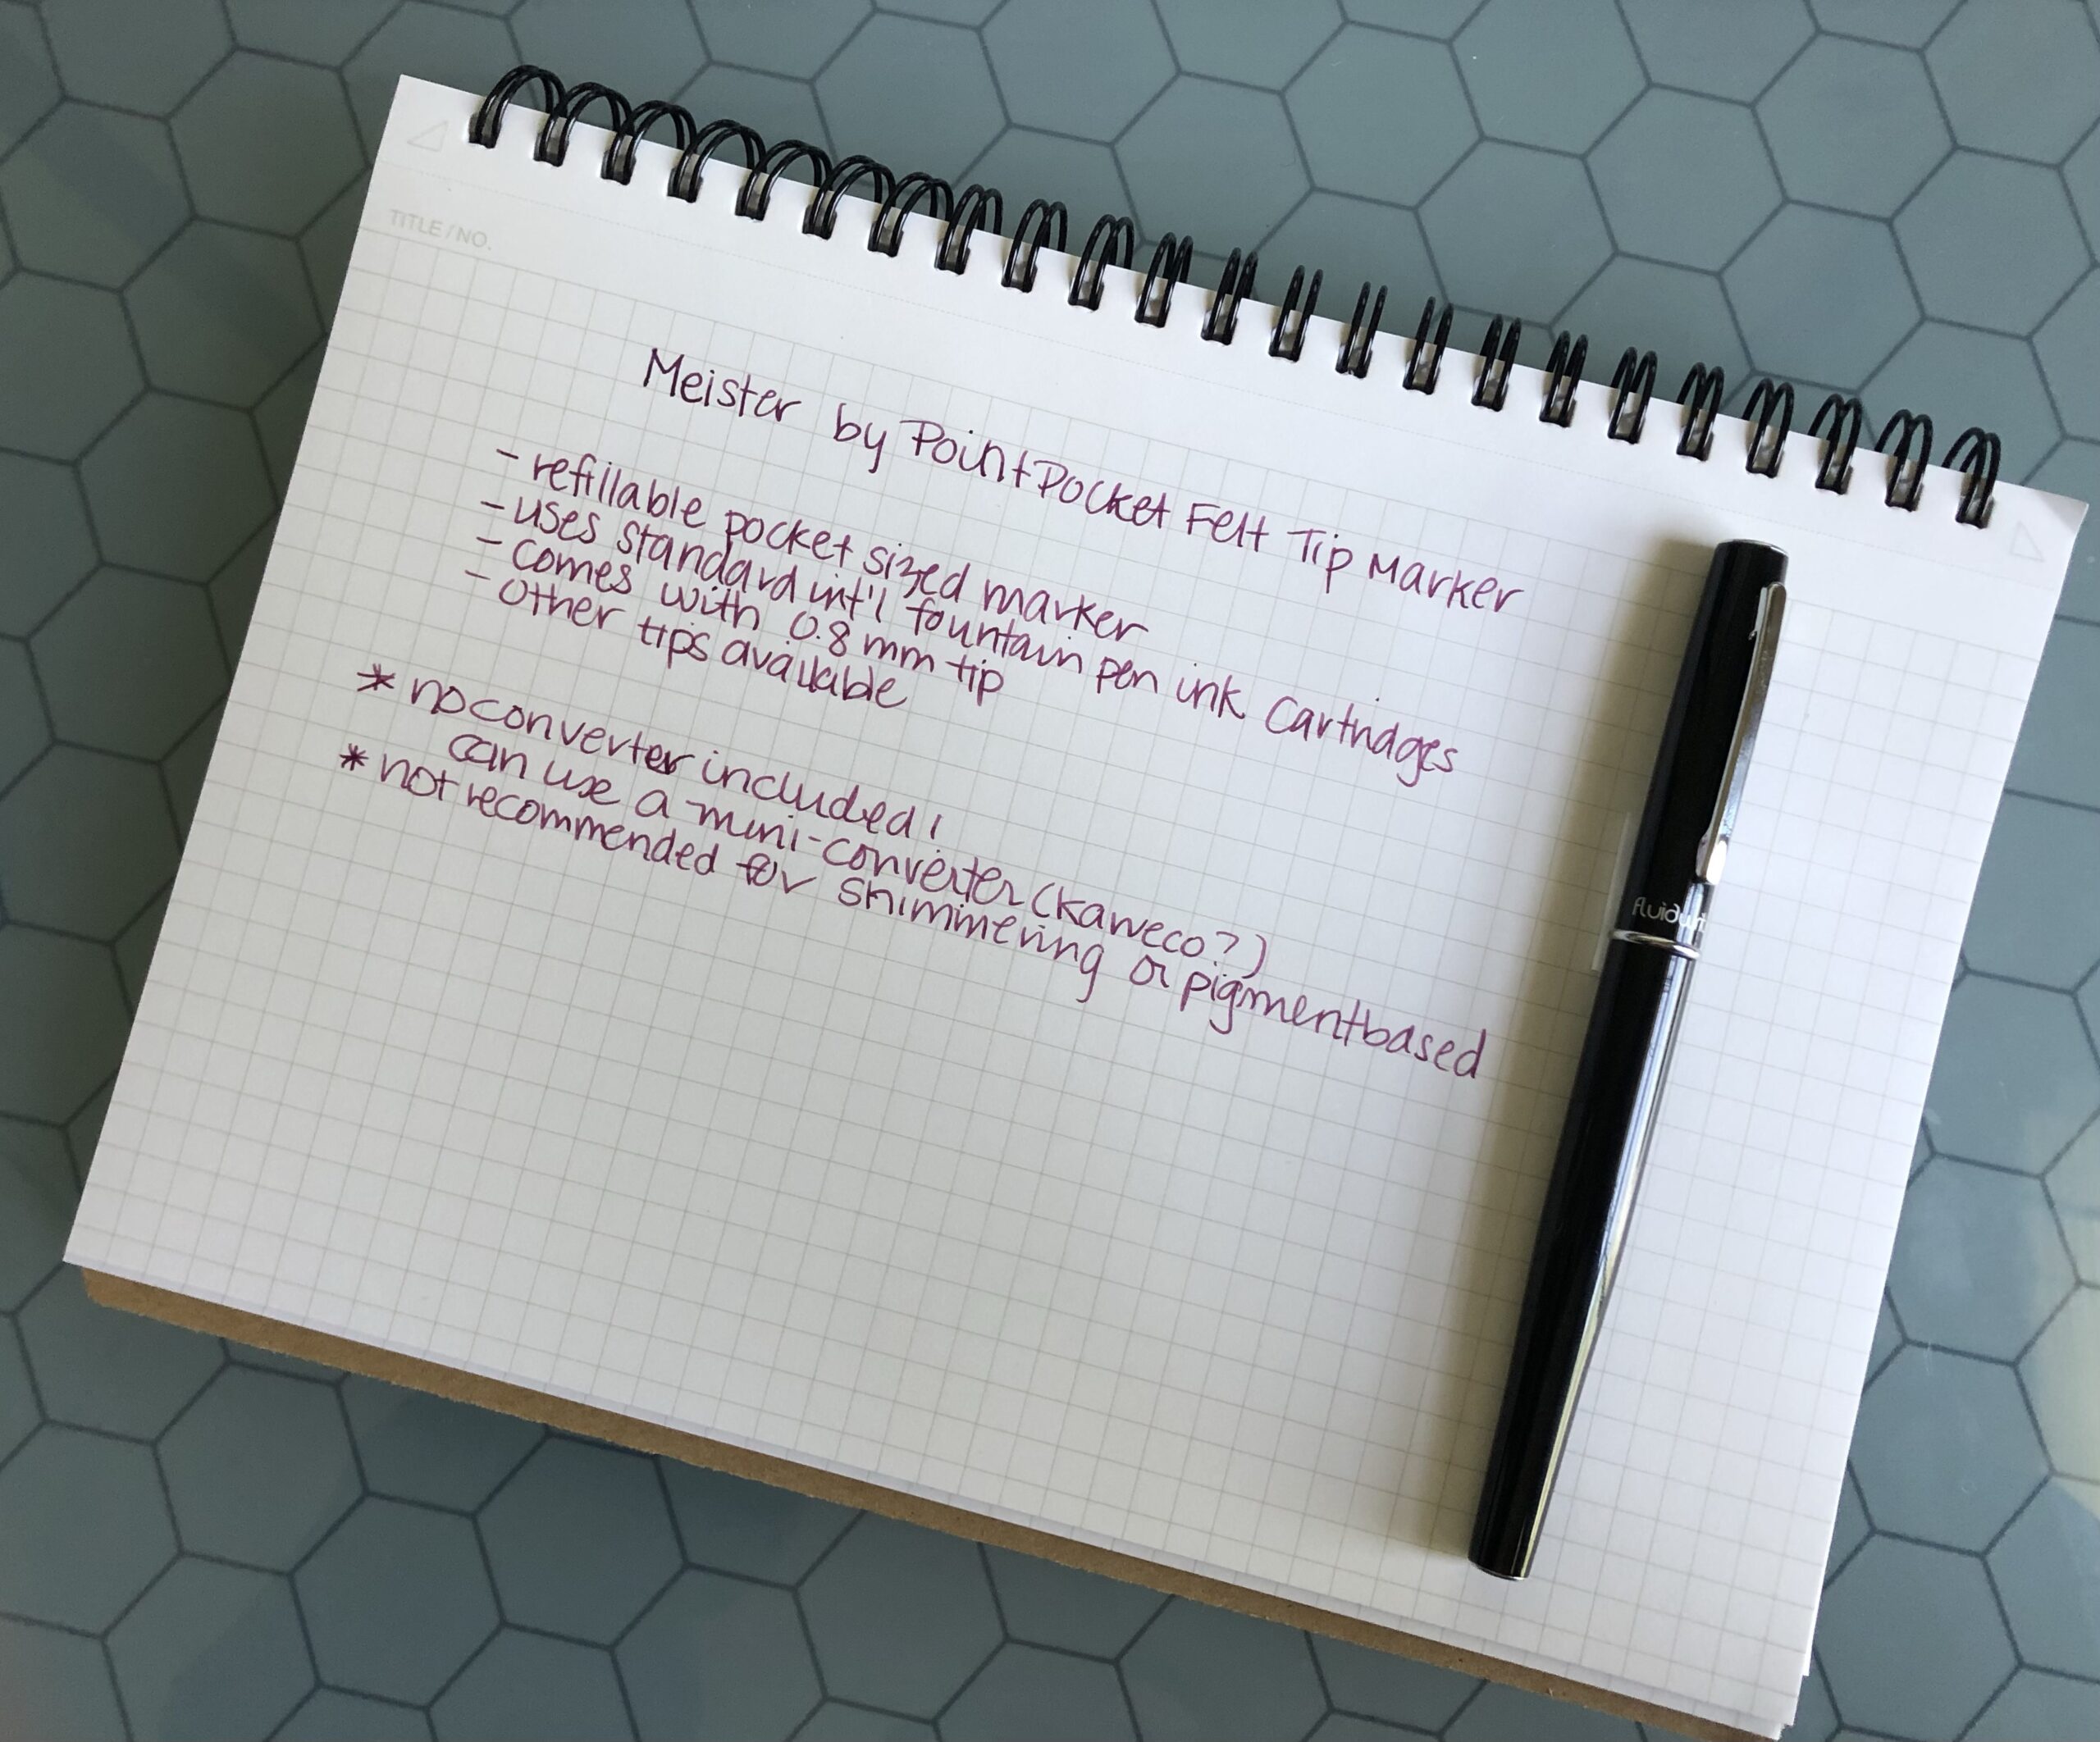 TITLE / NO.
Meister by Point Pocket Felt Tip Marker
- refillable pocket sized marker
- uses standard int'l fountain pen ink Cartridges
- comes with 0.8 mm tip
- other tips available
* no converter included!
can use a mini-converter (kaweco?)
* not recommended for shimmering or pigment based